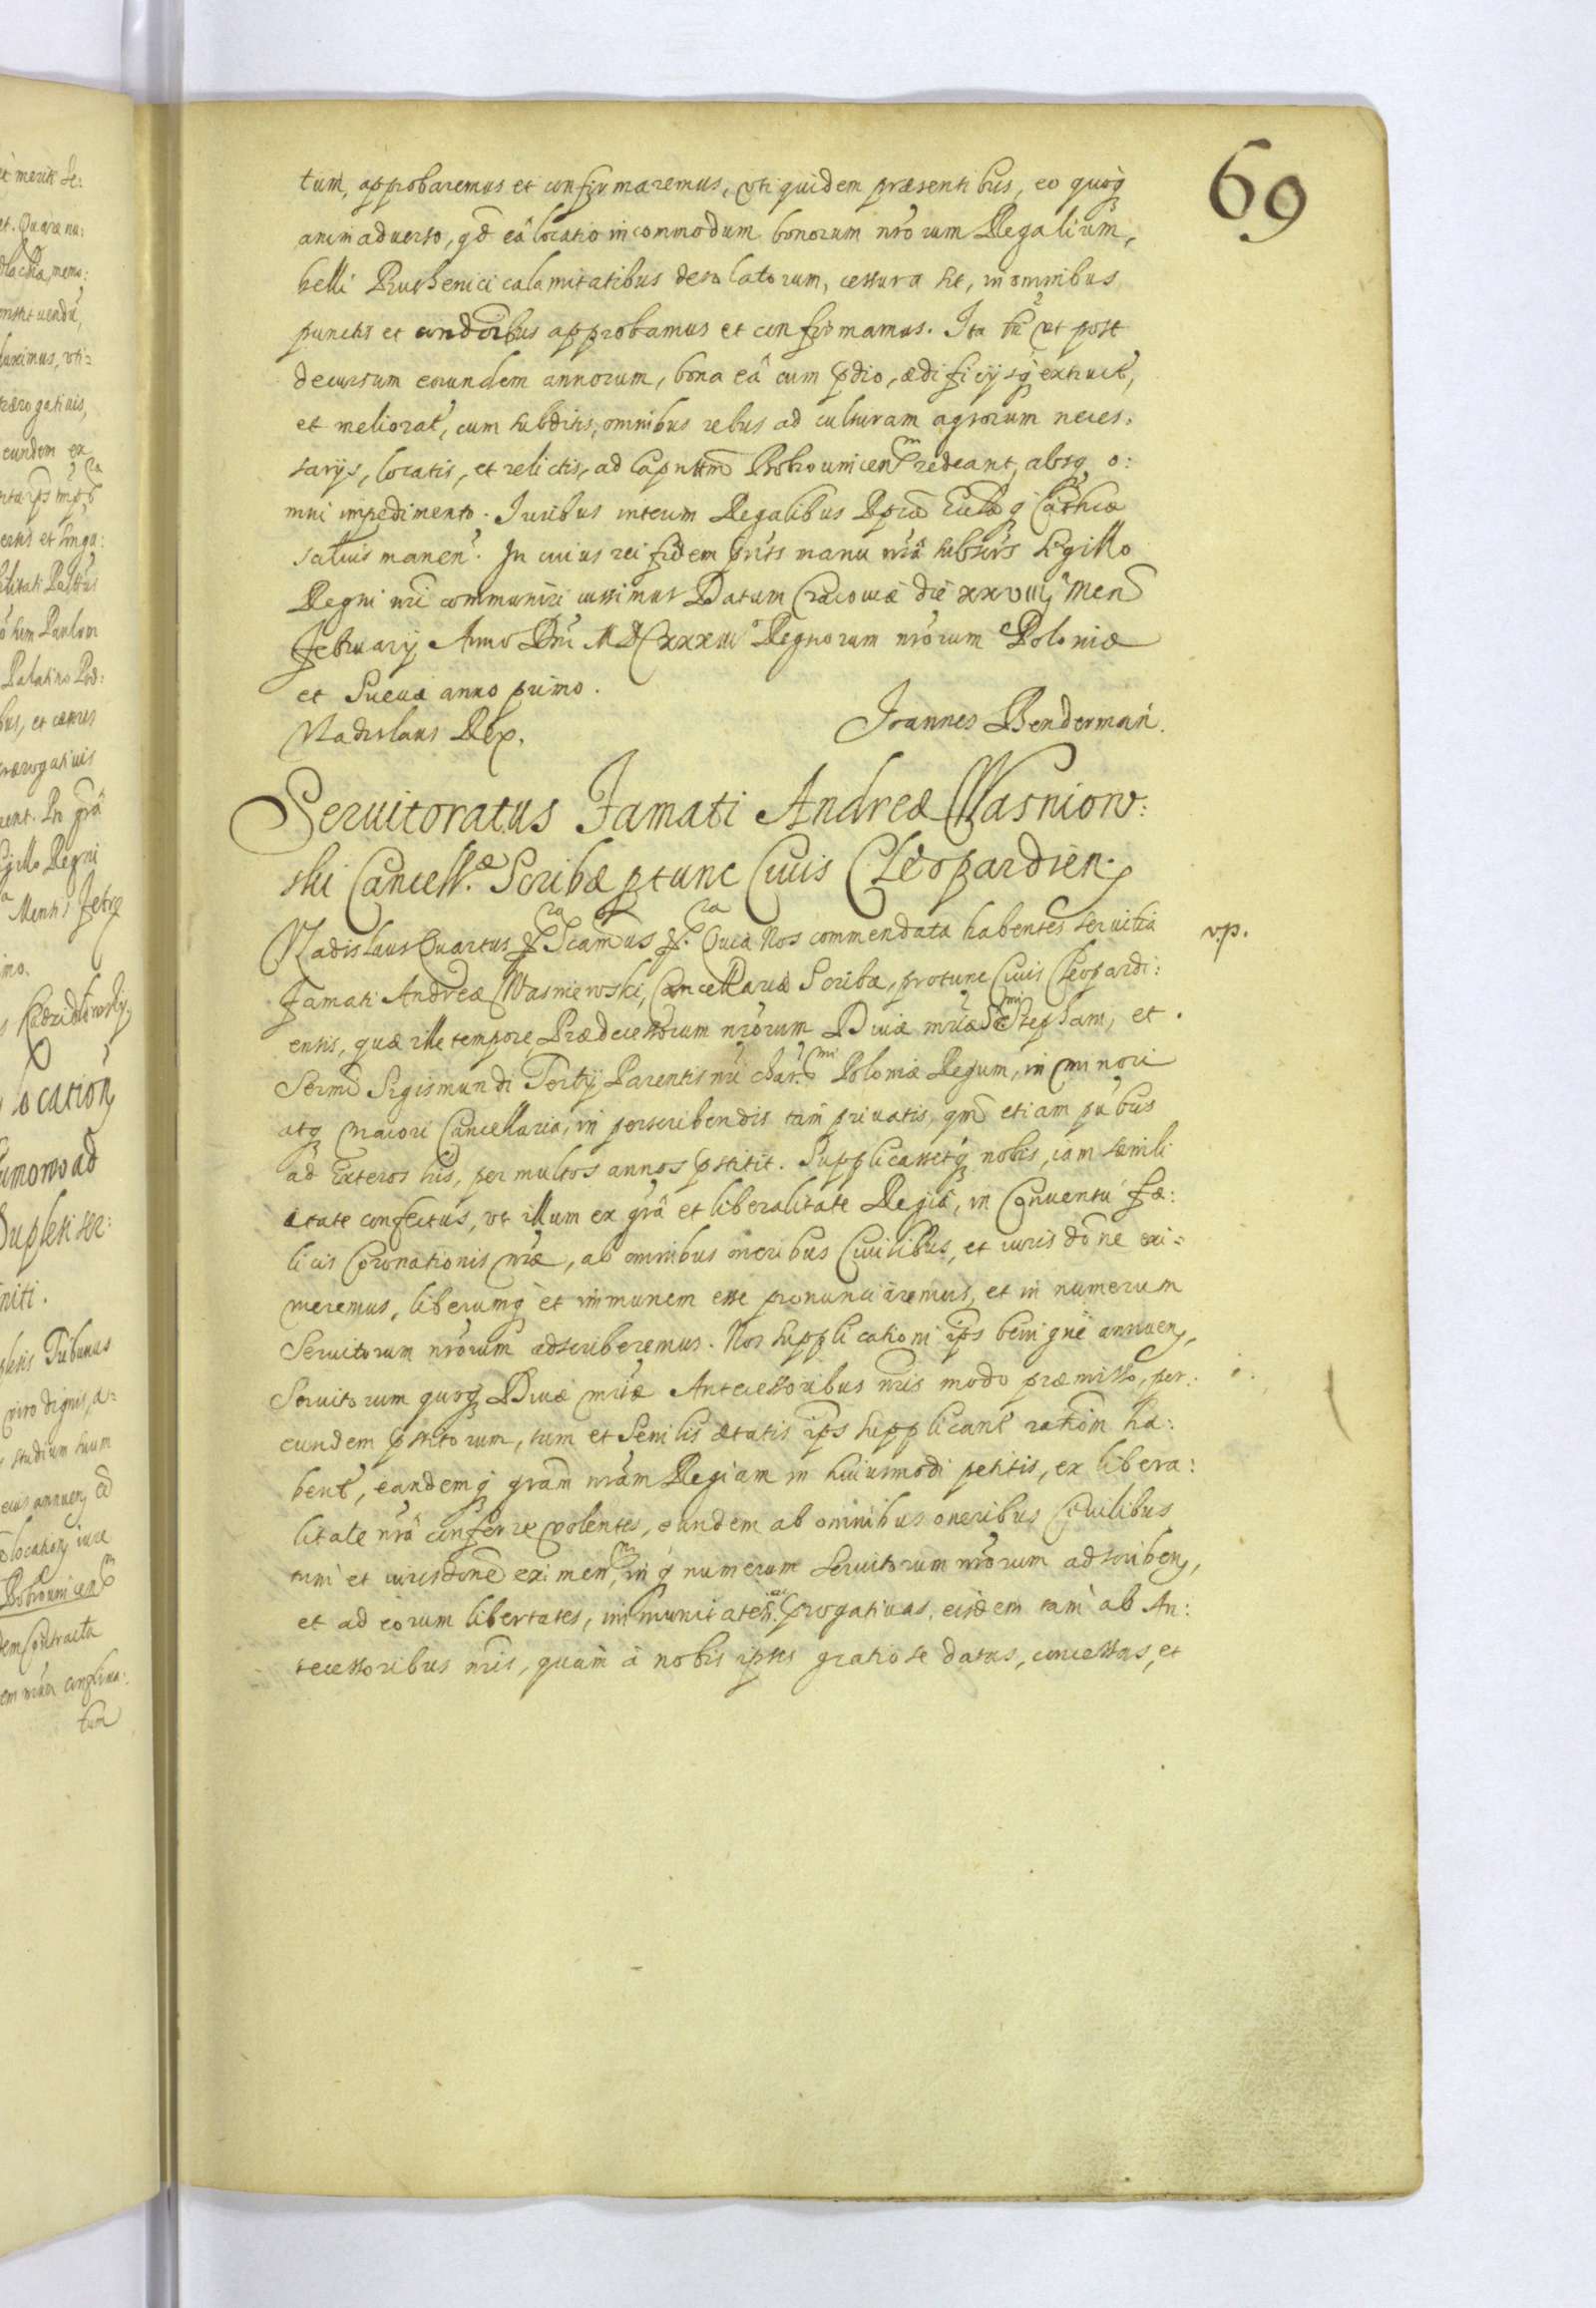 69
tum, approbaremus et confirmaremus, vti quidem præsentibus, eo quoq
animaduerso, qd eâ locatio in commodum bonorum nrorum Regalium,
belli Ruthenici calamitatibus desolatorum, cessura sit, in omnibus
punctis et condõibus approbamus et confirmamus. Ita tn vt post
decursum eorundem annorum, bona eâ cum pdio, ædificijsq extruct,
et meliorat, cum subditis, omnibus rebus ad culturam agrorum neces:
sarijs, locatis, et relictis, ad Capnum Bobrounicen redeant, absq o:
mni impedimento. Iuribus interim Regalibus Rpcæ Ecclæq Cathcæ
saluis manen. In cuius rei fidem prnts manu nrâ subscrs sigillo
Regni nri communiri iussimus Datum Cracouiæ die xxviiij Mens
February Anno Dni MDCxxxiii Regnorum nrorum Poloniæ
et Sueciæ anno primo.
Vladislaus Rex. Joannes Benderman.
Seruitoratus Famati Andreæ Wasniow:
ski Cancellæ Scribæ ptunc Ciuis Cleopardien.
Vladislaus Quartus &c Scamus &c. Quia Nos commendata habentes seruitia
v.p.
Famati Andreæ Wasniewski, Cancellariæ Scribæ, protunc Ciuis Cleopardi:
ensis, quæ ille tempore Prædecessorum nrorum Diuæ mriæ Smi Stephani, et
Sermi Sigismundi Tertij Parentis nri charmi Poloniæ Regum, in minori
atq maiori Cancellaria, in perscribendis tam priuatis, qm etiam pubus
ad Exteros lris, per multos annos pstitit. Supplicassetq nobis, iam senili
ætate confectus, vt illum ex grâ et liberalitate Regiâ, in Conuentu fæ:
licis Coronationis nræ, ab omnibus oneribus Ciuilibus, et iurisdone exi:
meremus, liberumq et immunem esse pronunciaremus, et in numerum
Seruitorum nrorum adscriberemus. Nos supplicationi ips benigne annuen,
Seruitorum quoq Diuæ mriæ Antecessoribus nris modo præmisso, per:
eundem pstitorum, tum et senilis ætatis ips supplicant rationem ha:
bent, eandemq gram nram Regiam in huiusmodi petitis, ex libera:
litate nrâ conferre volentes, eundem ab omnibus oneribus Ciuilibus
tum et iurisdone eximen, inq numerum seruitorum nrorum adscriben,
et ad eorum libertates, immunitaten. progatiuas, eisdem tam ab An:
tecessoribus nris, quam à nobis ipsis gratiose datas, concessas, et